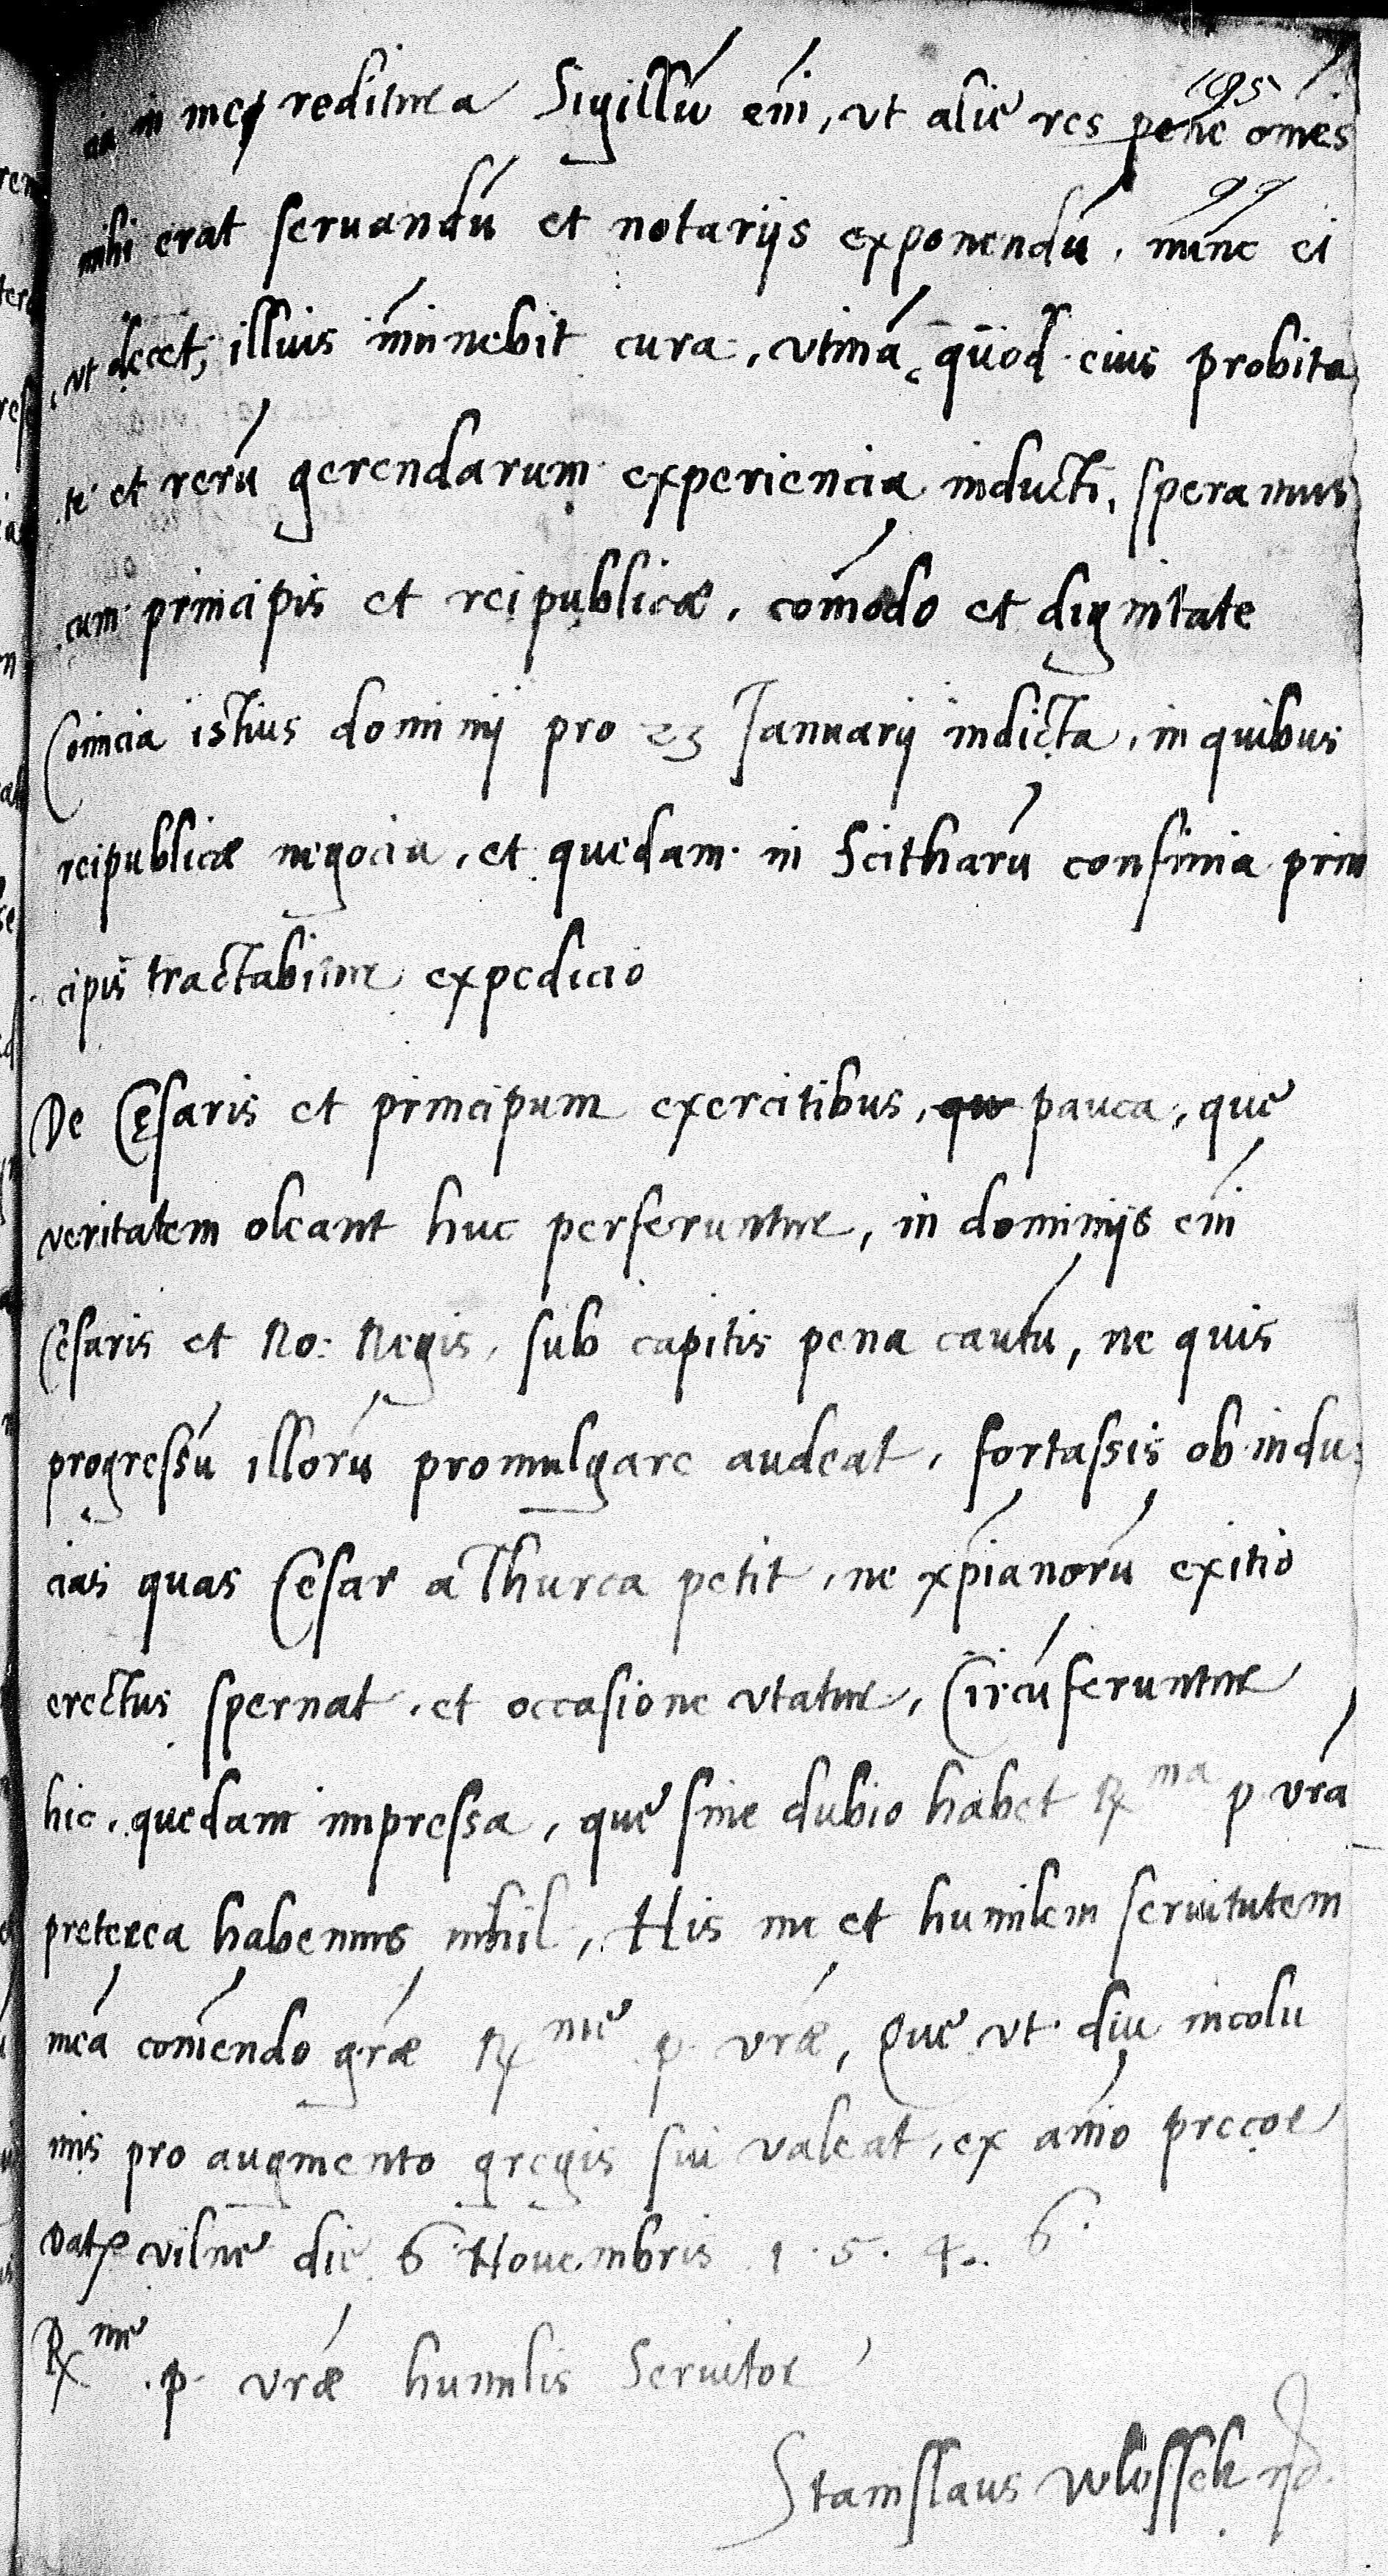 195
cia in meq redditura Sigillū em̄, vt alie res pene om̄es
97
mihi erat seruandū et notarijs exponendū, nunc ei
vt decet, illius im̄inebit cura, vtinā, quod eius probita
te et rerū gerendarum experiencia inducti, speramus
cum principis et reipublicæ, com̄odo et dignitate
Comicia istius dominij pro 23 Januarij indicta, in quibus
reipublicæ negocia, et quedam in Scitharū confinia prin
cipis tractabitur expedicio
De Cęsaris et principum exercitibus, pauca, que
veritatem oleant huc perferuntur, in dominijs em̄
Cesaris et Ro: Regis, sub capitis pena cautū, ne quis
progressū illorū promulgare audeat, fortassis ob indu
cias quas Cesar a Thurca petit, ne xp̄ianorū exitio
erectus spernat, et occasione vtatur, Circūferuntur
hic, quedam impressa, que sine dubio habet R ma p vr̄a
preterea habemus nihil, His me et humilem seruitutem
meā com̄endo gr̄æ R me p. vr̄æ, Que vt diu incolu
mis pro augmento gregis sui valeat, ex an̄io precor
Dat vilne die 6 Nouembris 1.5.4.6.
R me p. vr̄æ humilis Seruitor
Stanislaus Wlossek